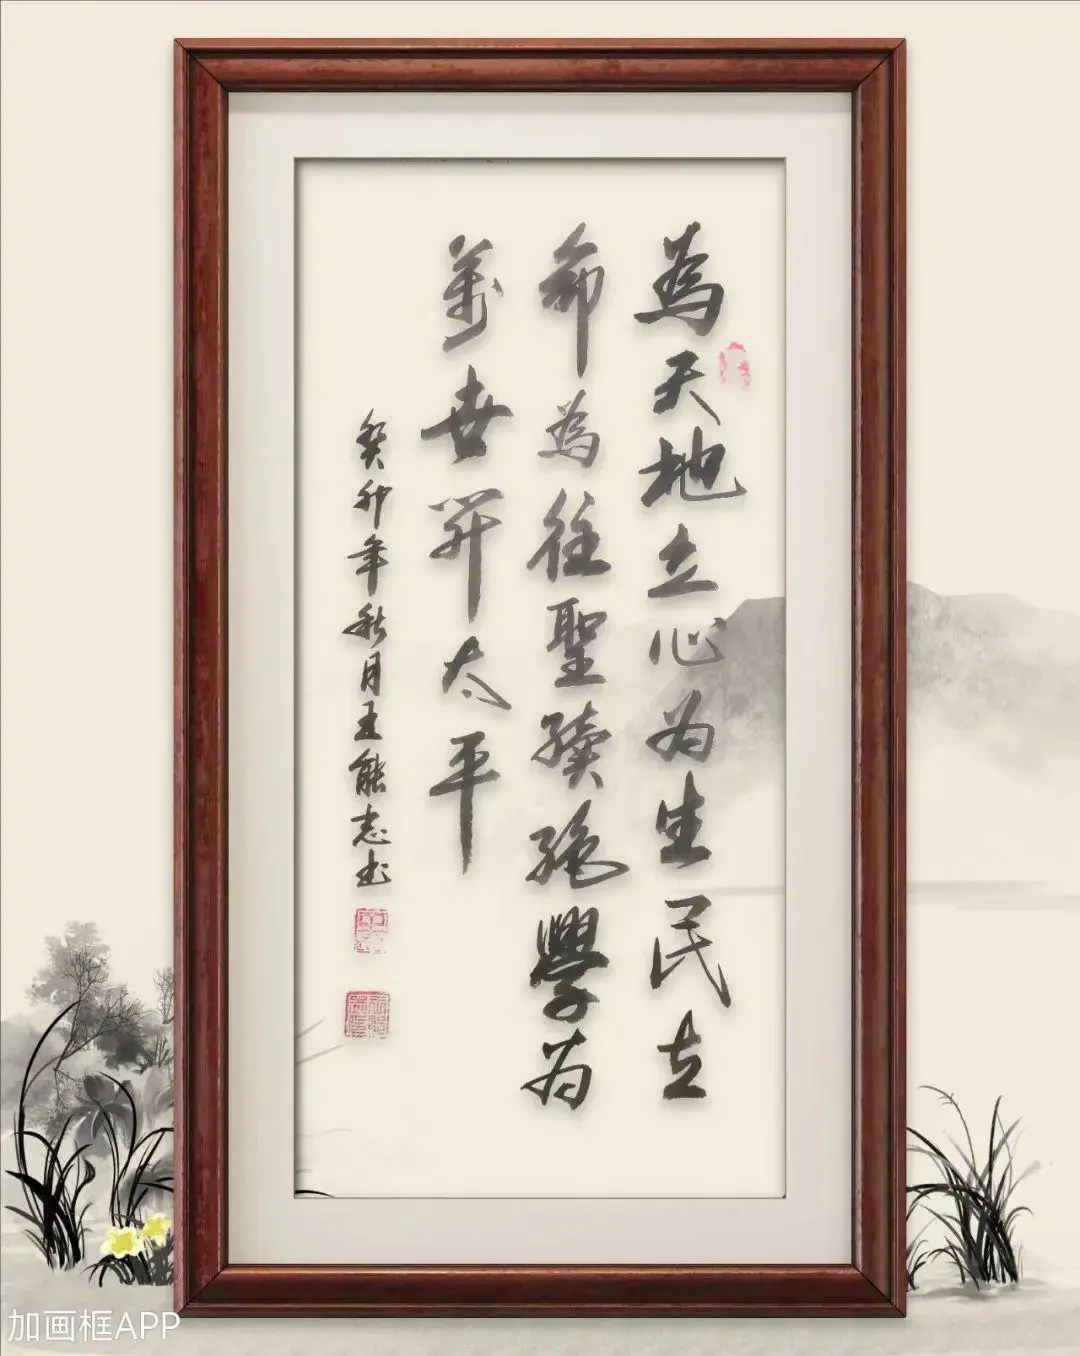 為天地立心为生民立
命為往聖續絶學为
萬世開太平
癸卯年秋月王能志书
加画框APP